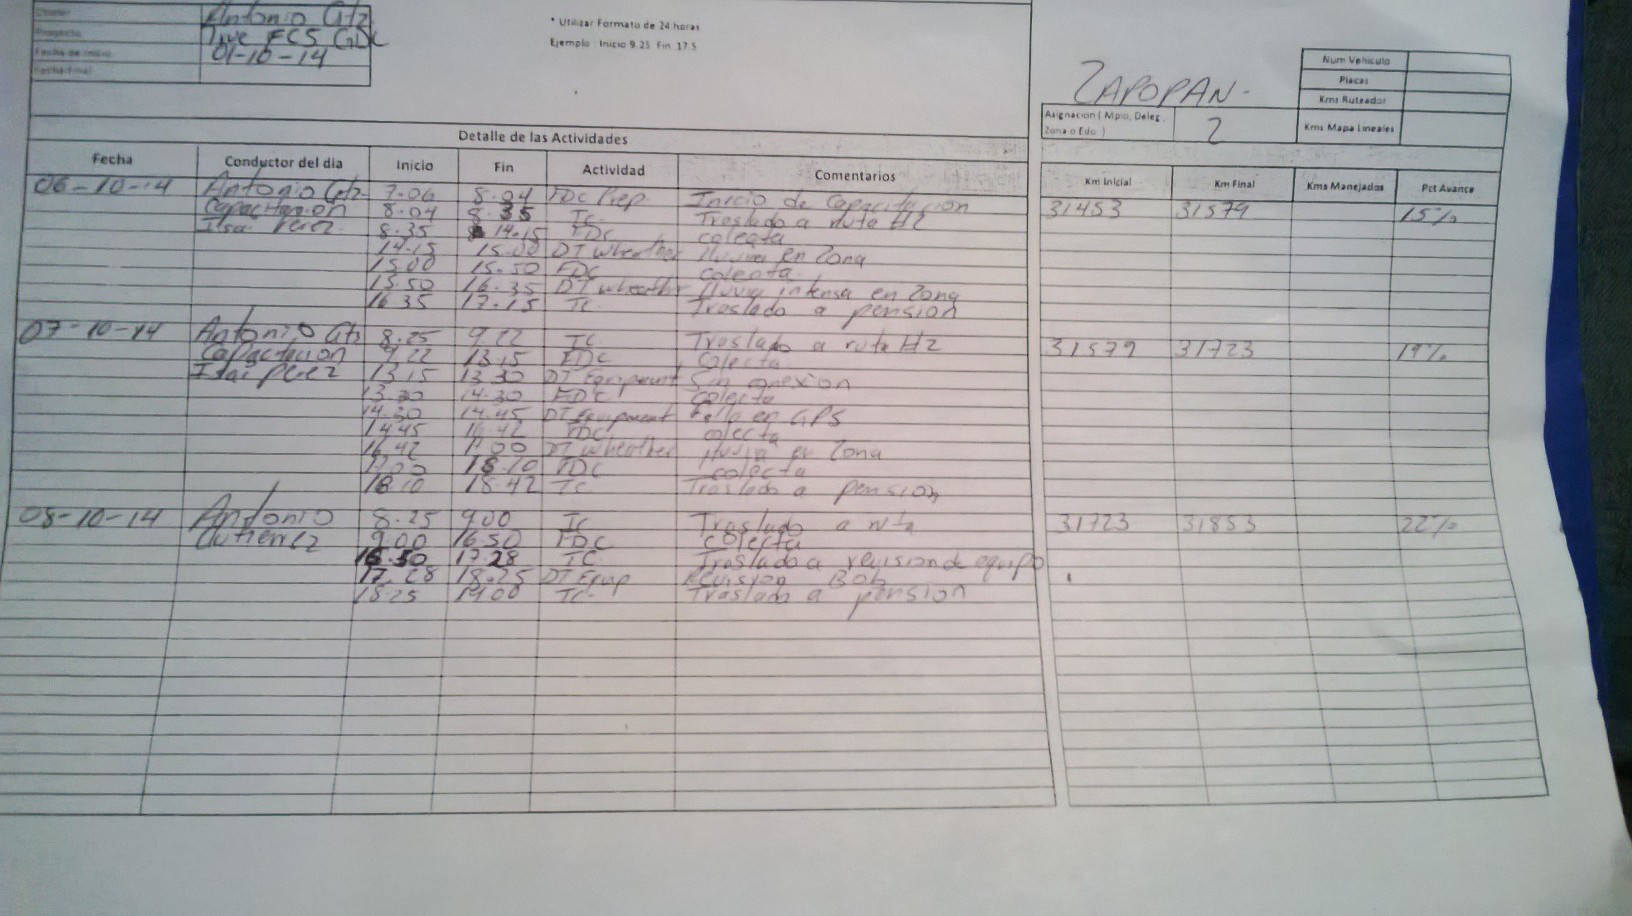 Antonio Gtz
Drive FCS GDL
Fecha de Inicio 01-10-14
Fecha Final
* Utilizar Formato de 24 horas
Ejemplo : Inicio 9.25 Fin 17.5
ZAPOPAN-
Asignacion ( Mpio, Deleg, Zona o Edo ) 2
Num Vehiculo
Placas
Kms Ruteador
Kms Mapa Lineales
Detalle de las Actividades
Fecha Conductor del dia Inicio Fin Actividad Comentarios Km Inicial Km Final Kms Manejados Pct Avance
06-10-14 Antonio Gtz 7.06 8.04 FDC Prep Inicio de Capacitacion 31453 31579 15%
Capacitacion 8.04 8.35 TC Traslado a ruta #2
Isai Perez 8.35 14.15 FDC colecta
14.15 15.00 DT wheather lluvia en Zona
15.00 15.50 FDC colecta
15.50 16.35 DT wheather lluvia intensa en Zona
16.35 17.15 TC. Traslado a pension
07-10-14 Antonio Gtz 8.25 9.22 TC Traslado a ruta #2 31579 31723 19%
Capactacion 9.22 13.15 FDC Colecta
Isai Perez 13.15 13.30 DT Equipment Sin conexion
13.30 14.30 FDC colecta
14.30 14.45 DT Equipment Falla en GPS
14.45 16.42 FDC colecta
16.42 17.00 DT wheather lluvia en Zona
17.00 18.10 FDC colecta
18.10 18.42 TC Traslado a pension
08-10-14 Antonio 8.25 9.00 TC Traslado a ruta 31723 31853 22%
Gutierrez 9.00 16.50 FDC colecta
16.50 17.28 TC Traslado a revision de equipo
17.28 18.25 DT Equip Revision Bob
18.25 19.00 TC. Traslado a pension